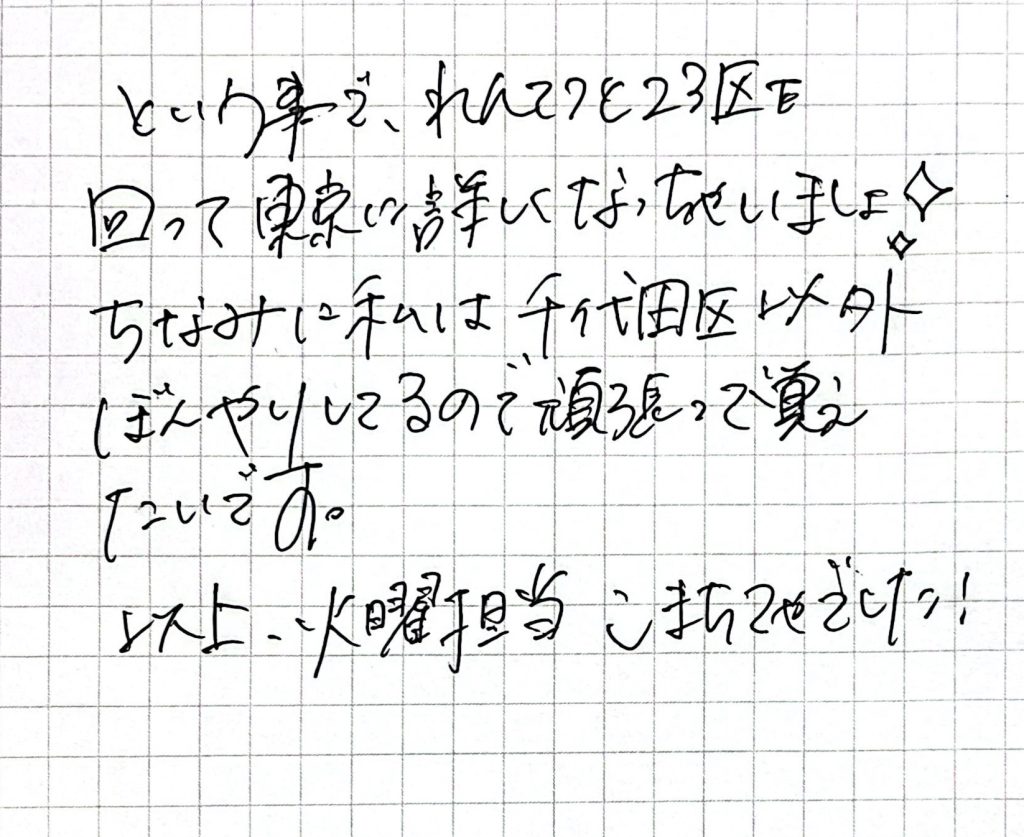 という事で、れんてつと23区を
回って東京に詳しくなっちゃいましょ✧
ちなみに私は千代田区以外
ぼんやりしてるので頑張って覚え
たいです。
以上、火曜担当 こまちでした!